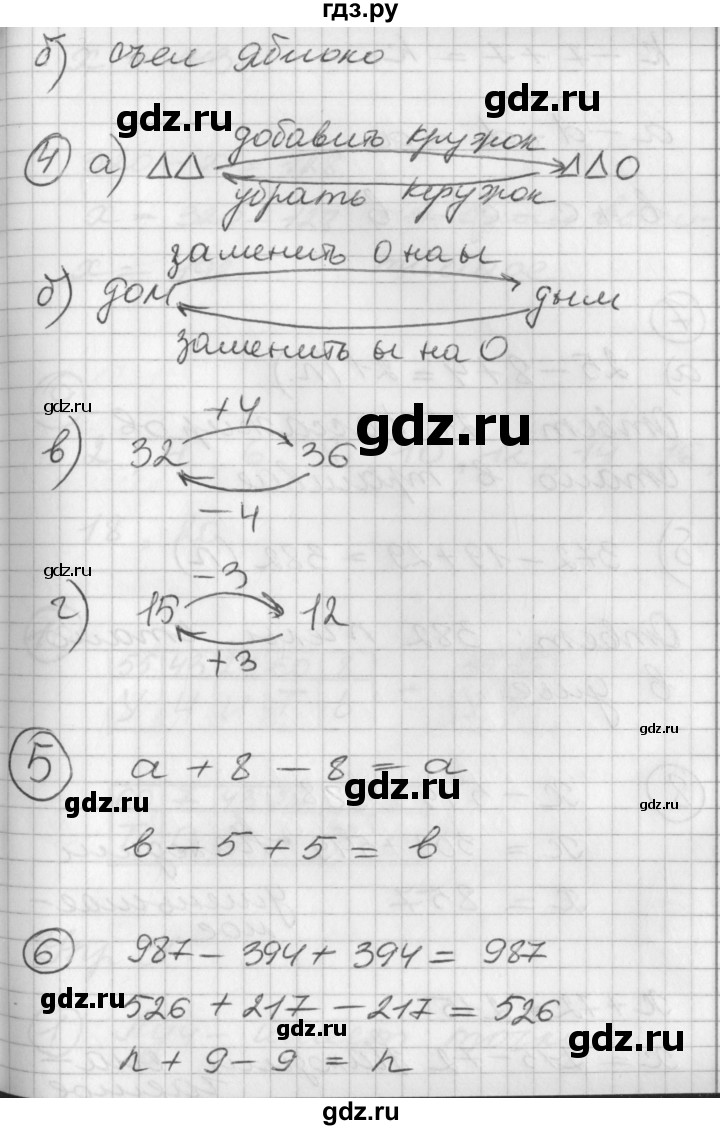 гдз.ру
б) съел яблоко
gdz.ru gdz.ru
добавить кружок
4 а) ΔΔ ΔΔO
убрать кружок
gdz.ru gdz.ru
заменить О на ы
б) дом дым
заменить ы на О
gdz.ru gdz.ru
+4
в) 32 36
-4
gdz.ru gdz.ru
-3
г) 15 12
+3
gdz.ru
5 а + 8 - 8 = а
gdz.ru gdz.ru gdz.ru
в - 5 + 5 = в
6 987 - 394 + 394 = 987
gdz.ru gdz.ru
526 + 217 - 217 = 526
gdz.ru gdz.ru
n + 9 - 9 = n
gdz.ru